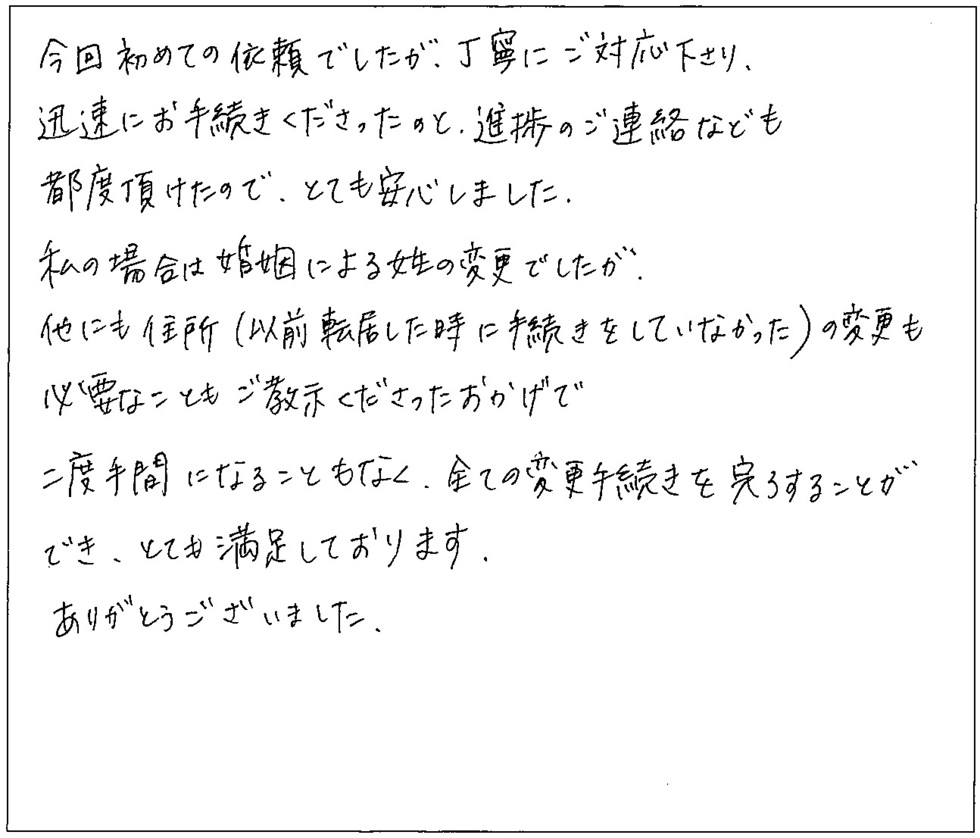 今回初めての依頼でしたが、丁寧にご対応下さり、
迅速にお手続きくださったのと、進捗のご連絡なども
都度頂けたので、とても安心しました。
私の場合は婚姻による姓の変更でしたが、
他にも住所(以前転居した時に手続きをしていなかった)の変更も
必要なこともご教示くださったおかげで
二度手間になることもなく、全ての変更手続きを完了することが
でき、とても満足しております。
ありがとうございました。